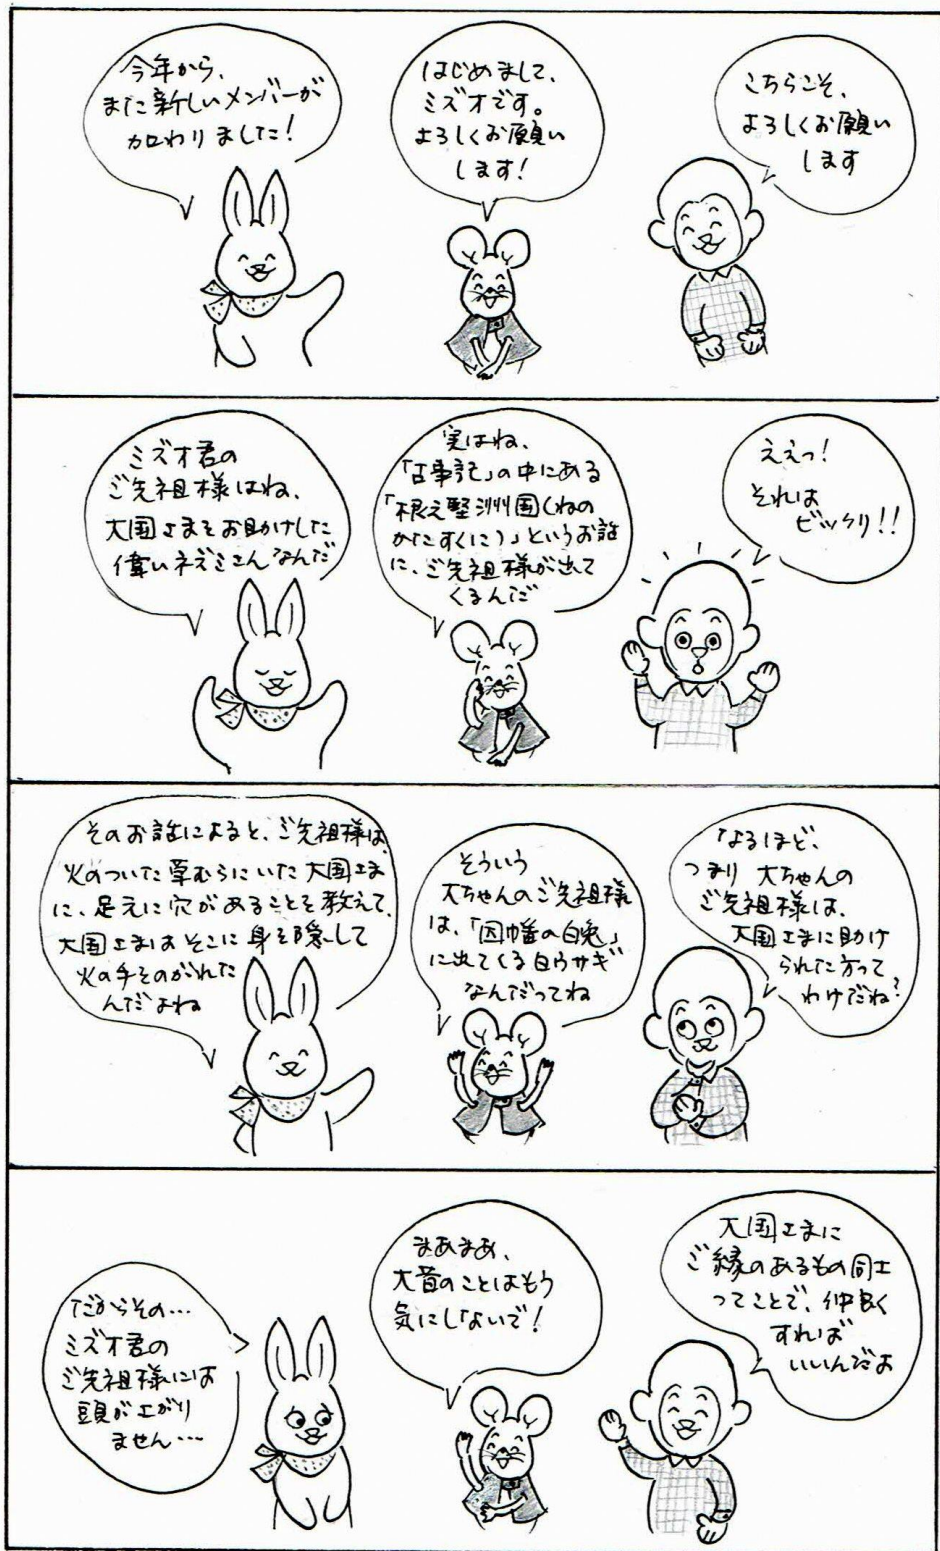 今年から、
また新しいメンバーが
加わりました!
はじめまして、
ミズオです。
よろしくお願い
します!
こちらこそ、
よろしくお願い
します
ミズオ君の
ご先祖様はね、
大国さまをお助けした
偉いネズミさんなんだ
実はね、
「古事記」の中にある
「根之堅洲国(ねの
かたすくに)」というお話
に、ご先祖様が出て
くるんだ
ええっ!
それは
ビックリ!!
そのお話によると、ご先祖様は、
火のついた草むらにいた大国さま
に、足元に穴があることを教えて、
大国さまはそこに身を隠して
火の手をのがれた
んだよね
そういう
大ちゃんのご先祖様
は、「因幡の白兎」
に出てくる白ウサギ
なんだってね
なるほど、
つまり 大ちゃんの
ご先祖様は、
大国さまに助け
られた方って
わけだね?
だからその…
ミズオ君の
ご先祖様には
頭が上がり
ません…
まあまあ、
大昔のことはもう
気にしないで!
大国さまに
ご縁のあるもの同士
ってことで、仲良く
すれば
いいんだよ